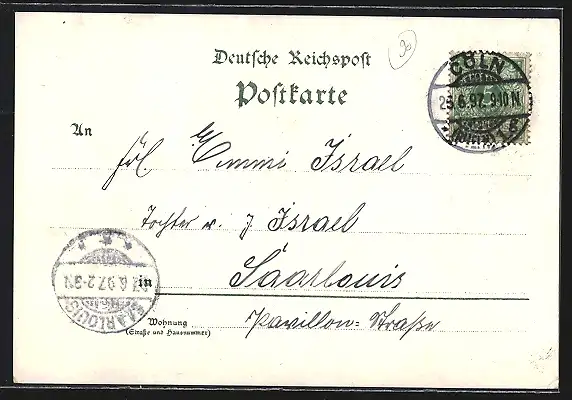 90
Deutsche Reichspost
Postkarte
CÖLN
25.6.97.9-10N
An
Frl. Emmi Israel
Tochter v. J Israel
in Saarlouis
6.97.2-3N
SAARLOUIS
Wohnung
(Straße und Hausnummer)
Pavillon-Straße